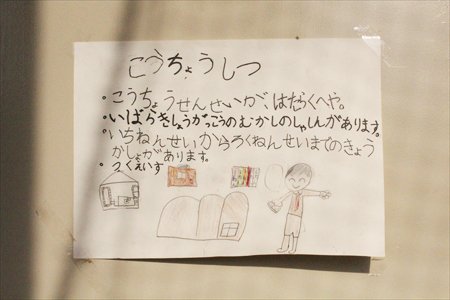 こうちょうしつ
・こうちょうせんせいが、はたらくへや。
・いばらきしょうがっこうのむかしのしゃしんがあります。
・いちねんせいからろくねんせいまでのきょう
かしょがあります。
・つくえいす